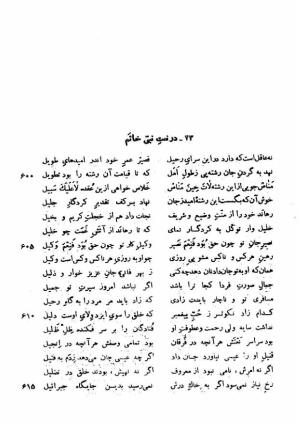 ۲۳ - در نعت نبی خاتم
نه عاقل است که دارد در این سرای رحیل قصیر عمر خود اندر امیدهای طویل
نهد به گردن جان رشته‌یی ز طول امل که تا قیامت آن رشته را بود تطویل ۶۰۰
خلاص خواهی از این سبیل
خوش آن که بگسست این رشتهٔ امید ز جان نهاد بر کف تقدیر کردگار جلیل
رهاند خود را از منت وضیع و شریف نجات داد هم از خجلت کریم و بخیل
خلیل وار توکل به کردگار نمای که تا رهاند از آتشی چو خلیل
نصیر جان تو چون حق بود فنعم نصیر وکیل کار تو چون حق بود فنعم وکیل ۶۰۵
رهین هر کس و ناکس مشو پی روزی چو اوت به روزی هر ناکس و کس است کفیل
همان که او به تو جان داد نان دهد چه کنی ز بهر فانی جان عزیز خوار و ذلیل
جمال صورت فردا کجا ترا باشد اگر نباشد امروز سیرت تو جمیل
مسافری تو و ناچار بایدت زادی که زاد باید هر مرد را به گاه رحیل
کدام زاد نکوتر ز حب پیغمبر که خلق را سوی ایزد ولای اوست دلیل ۶۱۰
نداشت سایه ولی رحمت و عطوفت او فتادگان را بر سر فکنده ظل ظلیل
بود سراسر نعتش هر آنچه در قرآن بود تمامی وصفش هر آنچه در انجیل
قتیل او را عیسی نیاورد جان داد اگر چه عیسی جان می‌دهد به قتیل
اگر نه امرش، نامی نبود از معروف اگر نه نهیش، بودند خلق در تضلیل
رخ نیاز نمی‌سود اگر به خاک درش نمی‌رسید بدین جایگاه جبرائیل ۶۱۵